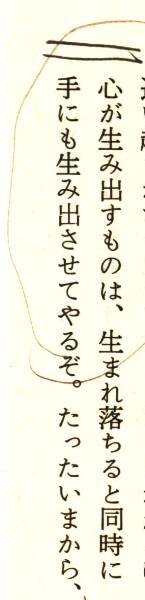 心が生み出すものは、生まれ落ちると同時に
手にも生み出させてやるぞ。たったいまから、